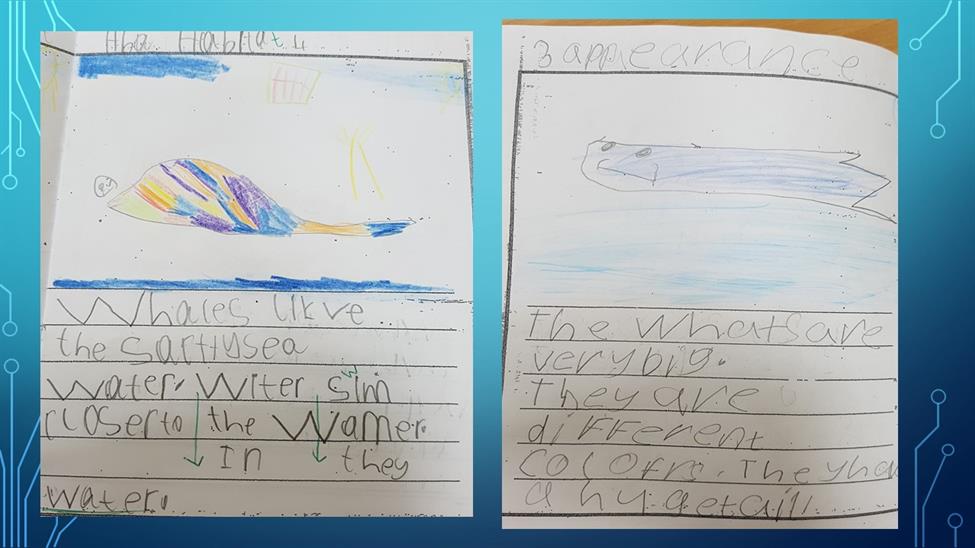 the Habitat 4
Whales likve
the saltysea
water. Writer sim
w
closer to the Wamer.
In they
water.
3 appearance
the whats are
very big.
They are
different
colofrs. They ha
a hy getail